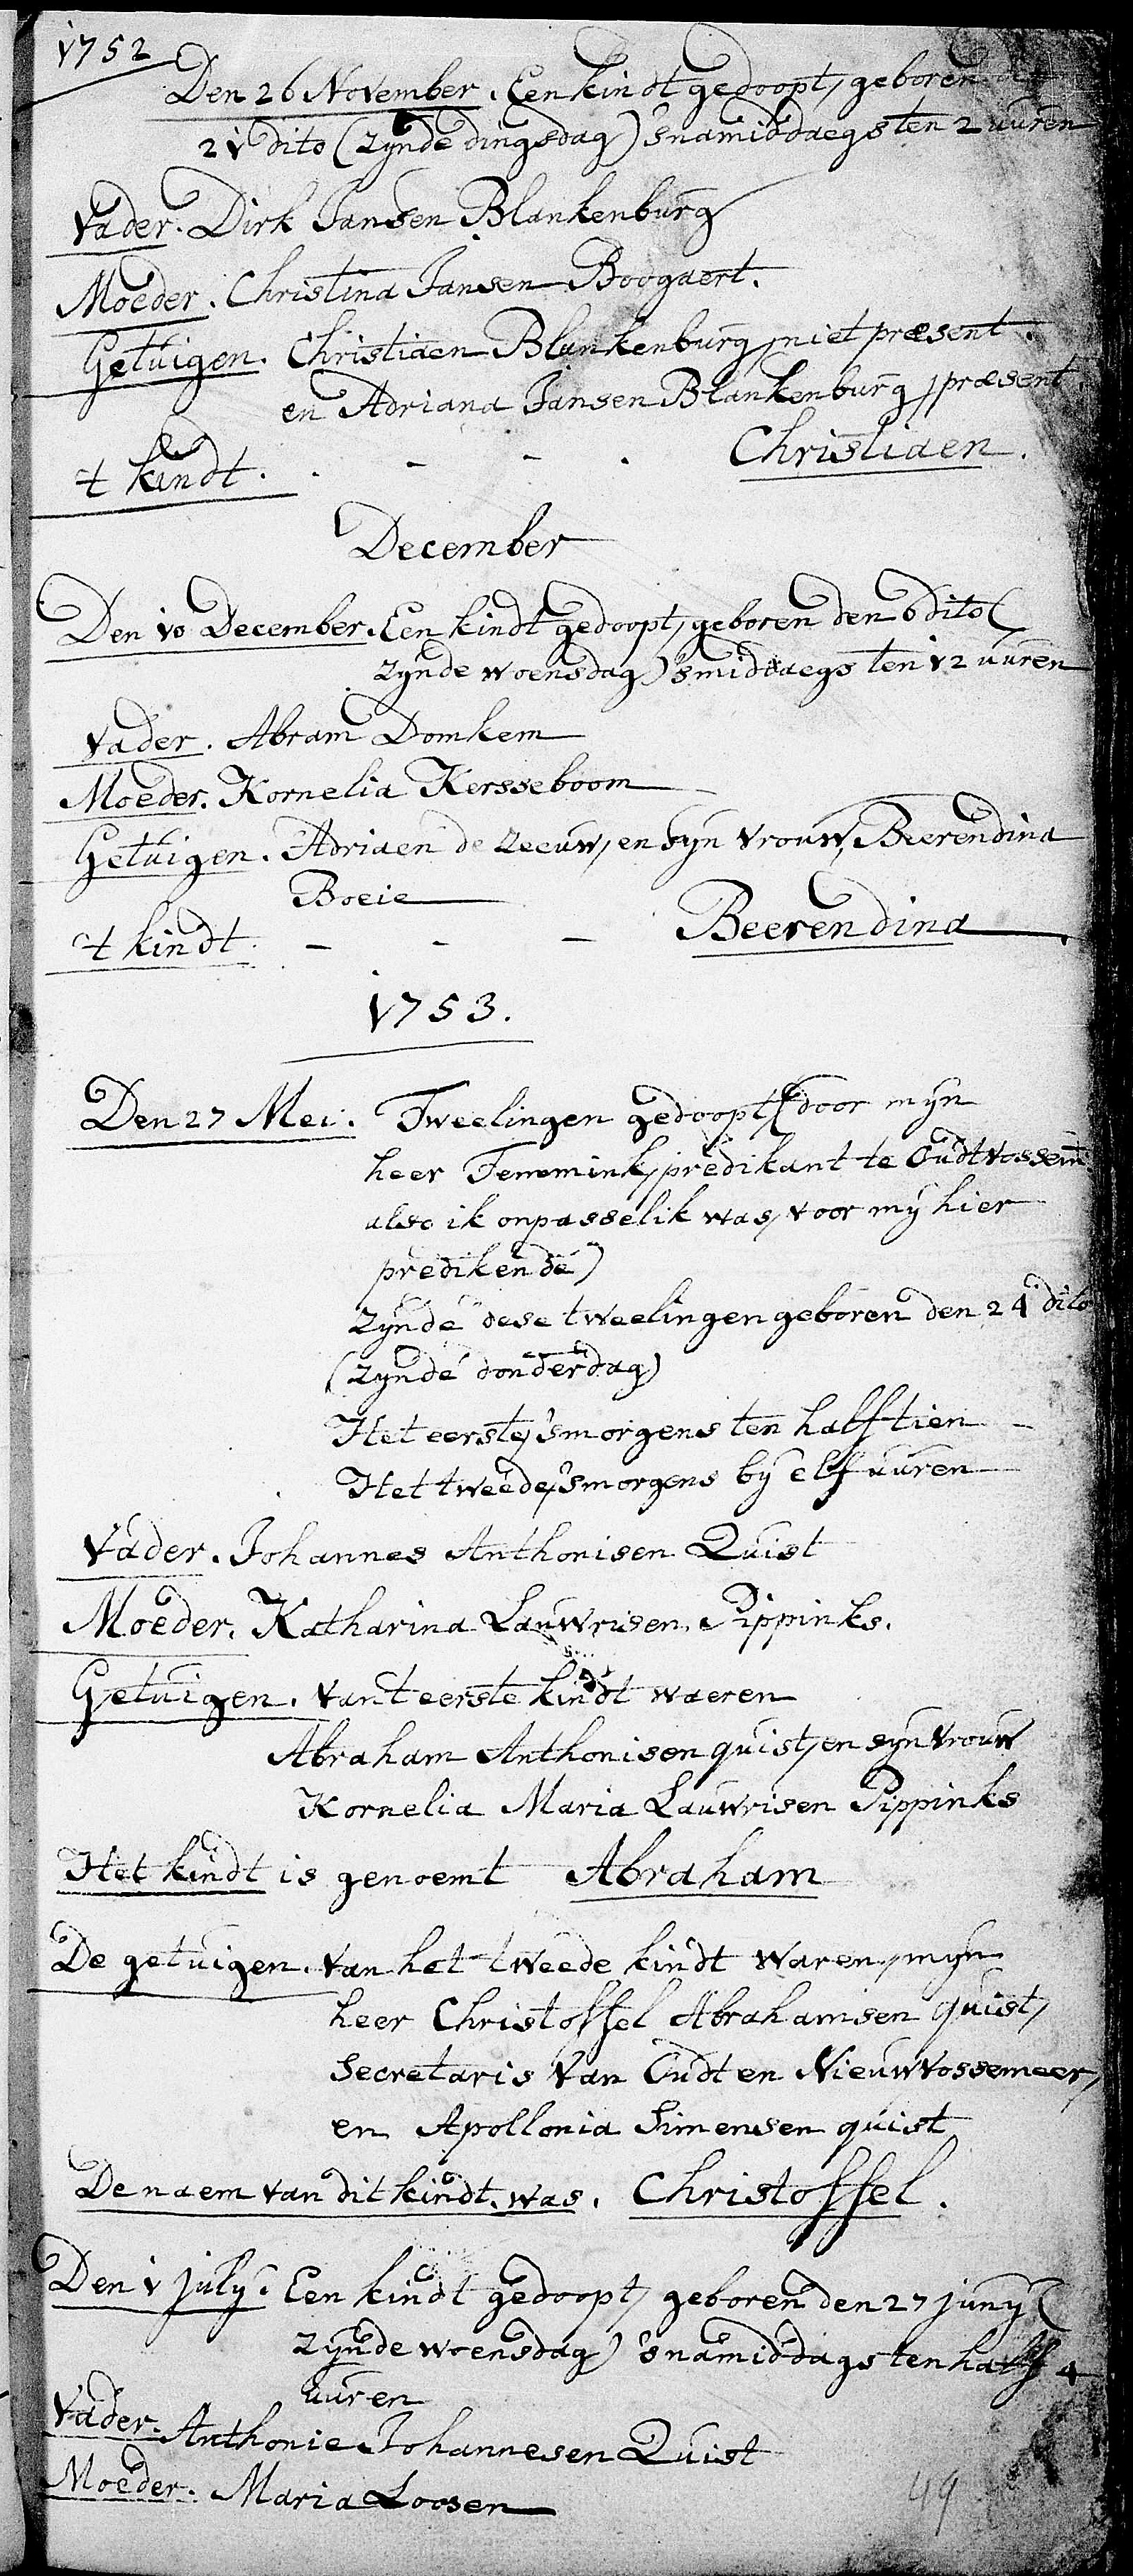 1752
Den 26 November. Een kindt gedoopt, geboren den
21 dito (zynde dingsdag) 'snamiddaegs ten 2 uuren
Vader. Dirk Jansen Blankenburg
Moeder. Christina Jansen Boogaert.
Getuigen. Christiaen Blankenburg, niet præsent.
en Adriana Jansen Blankenburg, præsent.
't kindt. . - - . Christiaen.
December
Den 10 December. Een kindt gedoopt, geboren den 6 dito (
zynde woensdag) 'smiddaegs ten 12 uuren
Vader. Abram Domkem
Moeder. Kornelia Kersseboom
Getuigen. Adriaen de Zeeuw, en syn vrouw, Beerendina
Boeie
't kindt. - - - Beerendina.
1753.
Den 27 Mei. Tweelingen gedoopt (door myn
heer Temmink, predikant te Oudtvossem:
also ik onpasselik was, voor my hier
predikende)
zynde dese tweelingen geboren den 24 dito
(zynde donderdag)
Het eerste, 'smorgens ten halftien
Het tweede, 'smorgens by elf uuren
Vader. Johannes Anthonisen Quist
Moeder. Katharina Lauwrisen Pippinks.
Getuigen. van 't eerste kindt waeren
Abraham Anthonisen quist, en syn vrouw
Kornelia Maria Lauwrisen Pippinks
Het kindt is genoemt Abraham
De getuigen. van het tweede kindt waren, myn
heer Christoffel Abrahamsen quist,
Secretaris van Oudt en Nieuwvossemeer,
en Apollonia Simensen quist
De naem van dit kindt. was. Christoffel.
Den 1 july. Een kindt gedoopt, geboren den 27 juny (
zynde woensdag) 'snamiddags ten half 4
uuren
Vader. Anthonie Johannesen Quist
Moeder. Maria Loosen
49